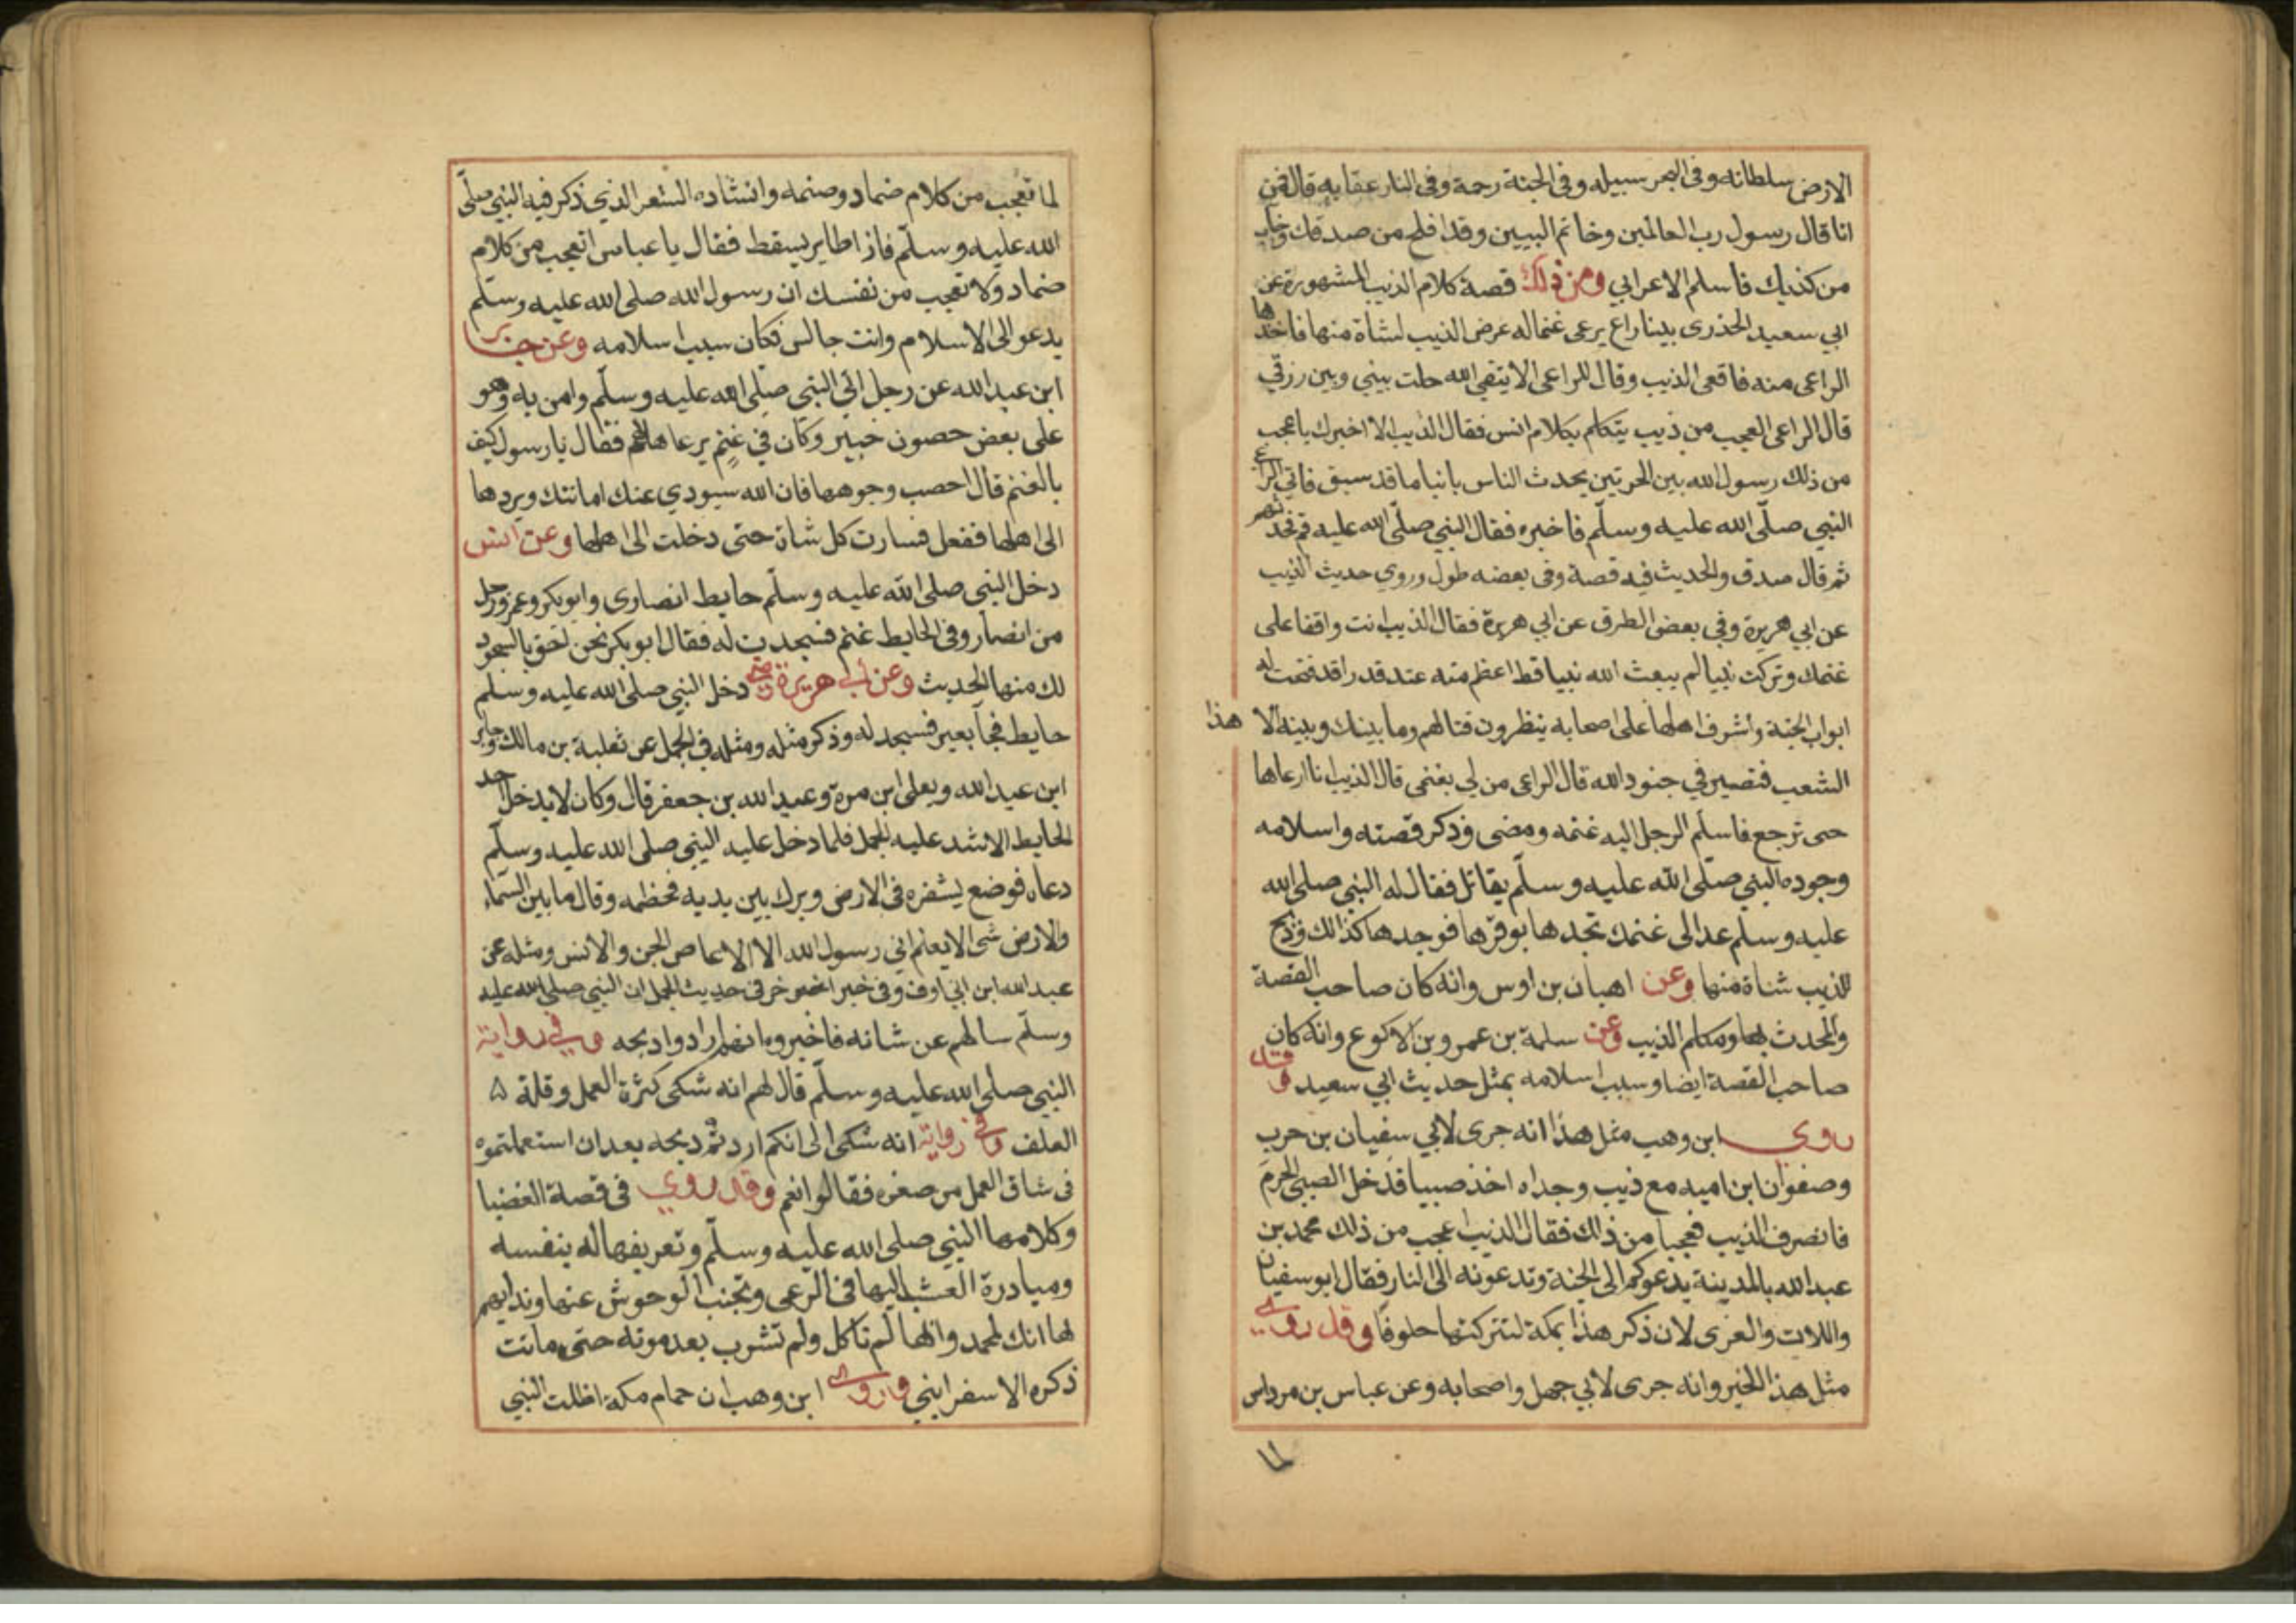 الارض سلطانه وفى البحر سبيله وفى الجنة رحمة وفى النار عقابه قال فمن
انا قال رسول رب العالمين وخاتم النبيين وقد افلح من صدقك وخاب
من كذبك فاسلم الاعرابي ومن ذلك قصة كلام الذيب المشهورة عن
ابي سعيد الخدرى بينا راع يرعى غنما له عرض الذيب لشاة منها فاخذها
الراعى منه فاقعى الذيب وقال للراعى الا يتقى الله حلت بيني وبين رزقي
قال الراعى العجب من ذيب يتكلم بكلام انس فقال الذيب الا اخبرك باعجب
من ذلك رسول الله بين الحرتين يحدث الناس بانبا ما قد سبق فاتى الراع
النبي صلّى الله عليه وسلّم فاخبره فقال النبي صلّى الله عليه قم فحدثهم
ثم قال صدق والحديث فيه قصة وفى بعضه طول وروي حديث الذيب
عن ابي هريرة وفي بعض الطرق عن ابي هريرة فقال الذيب انت واقفا على
غنمك وتركت نبيا لم يبعث الله نبيا قط اعظم منه عنده قدرا قد فتحت له
ابواب الجنة واشرف اهلها على اصحابه ينظرون قتالهم وما بينك وبينه الا هذا
الشعب فتصير في جنود الله قال الراعى من لي بغنمى قال الذيب انا ارعاها
حتى ترجع فاسلم الرجل اليه غنمه ومضى وذكر قصته واسلامه
وجوده النبي صلّى الله عليه وسلّم يقاتل فقال له النبي صلى الله
عليه وسلم عد الى غنمك تجدها بوفرها فوجدها كذالك وذبح
للذيب شاة منها وعن اهبان بن اوس وانه كان صاحب القصة
والمحدث بها ومكلم الذيب وعن سلمة بن عمرو بن الاكوع وانه كان
صاحب القصة ايضا وسبب اسلامه بمثل حديث ابي سعيد وقد
روى ابن وهب مثل هذا انه جرى لابي سفيان بن حرب
وصفوان ابن اميه مع ذيب وجداه اخذ صبيا فدخل الصبي الحرم
فانصرف الذيب فعجبا من ذالك فقال الذيب اعجب من ذلك محمد بن
عبد الله بالمدينة يدعوكم الى الجنة وتدعونه الى النار فقال ابو سفيان
واللات والعزى لان ذكر هذا بمكة لتتركنها خلوفا وقد روى
مثل هذا الخبر وانه جرى لابي جهل واصحابه وعن عباس بن مرداس
لما
لما تعجب من كلام ضماد وصنمه وانشاده الشعر الذي ذكر فيه النبي صلّى
الله عليه وسلّم فاذا طاير يسقط فقال يا عباس اتعجب من كلام
ضماد ولا تعجب من نفسك ان رسول الله صلى الله عليه وسلّم
يدعو الى الاسلام وانت جالس فكان سبب اسلامه وعن جابر
ابن عبد الله عن رجل اتى النبي صلى الله عليه وسلّم وامن به وهو
على بعض حصون خيبر وكان في غنم يرعاها لهم فقال يا رسول كيف
بالغنم قال احصب وجوهها فان الله سيودي عنك امانتك ويردها
الى اهلها ففعل فسارت كل شاة حتى دخلت الى اهلها وعن انس
دخل النبي صلى الله عليه وسلّم حايط انصارى وابو بكر وعمر ورجل
من انصار وفى الحايط غنم فسجدت له فقال ابو بكر نحن احق بالسجود
لك منها الحديث وعن ابي هريرة رضي دخل النبي صلى الله عليه وسلم
حايط فجا بعير فسجد له وذكر مثله ومثله في الجمل عن ثعلبة بن مالك وجابر
ابن عبد الله ويعلى ابن مرة وعبد الله بن جعفر قال وكان لا يدخل احد
الحايط الا شد عليه الجمل فلما دخل عليه النبي صلى الله عليه وسلّم
دعاه فوضع يشفره فى الارض وبرك بين يديه فخطمه وقال ما بين السماء
والارض شى الا يعلم اني رسول الله الا الاعاص الجن والانس ومثله عن
عبد الله ابن ابي اوفى وفى خبر اخر فى حديث الجمل ان النبي صلى الله عليه
وسلّم سالهم عن شانه فاخبروه انهم ارادوا ذبحه وفي رواية
النبي صلى الله عليه وسلّم قال لهم انه شكى كثرة العمل وقلة
العلف وفي رواية انه شكى الى انكم اردتم ذبحه بعد ان استعملتموه
فى شاق العمل من صغره فقالوا نعم وقد روي فى قصة العضبا
وكلامها النبي صلى الله عليه وسلّم وتعريفها له بنفسه
ومبادرة العشب اليها فى الرعى وتجنب الوحوش عنها وندايهم
لها انك لمحمد وانها لم تاكل ولم تشرب بعد موته حتى ماتت
ذكره الاسفرايني وروى ابن وهب ان حمام مكة اظلت النبي